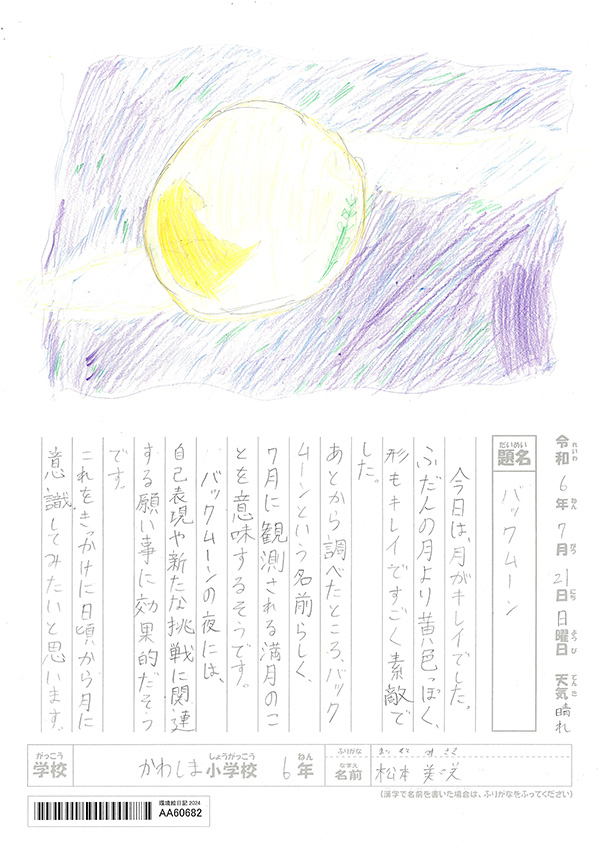 令和6年7月21日日曜日 天気晴れ
題名 バックムーン
今日は、月がキレイでした。
ふだんの月より黄色っぽく、
形もキレイですごく素敵で
した。
あとから調べたところ、バック
ムーンという名前らしく、
7月に観測される満月のこ
とを意味するそうです。
バックムーンの夜には、
自己表現や新たな挑戦に関連
する願い事に効果的だそう
です。
これをきっかけに日頃から月に
意識してみたいと思います。
学校 かわしま小学校 6年
ふりがな まつもと みさき
名前 松本 美咲
(漢字で名前を書いた場合は、ふりがなをふってください)
環境絵日記2024
AA60682